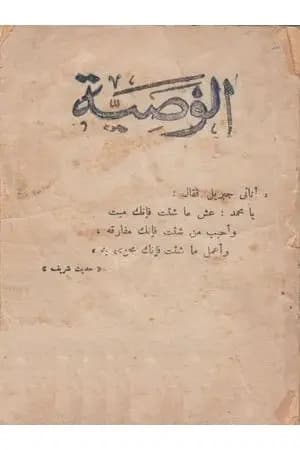 الوصية
« أتاني جبريل فقال :
يا محمد : عش ما شئت فإنك ميت
وأحبب من شئت فإنك مفارقه ،
وأعمل ما شئت فإنك مجزي به »
« حديث شريف »